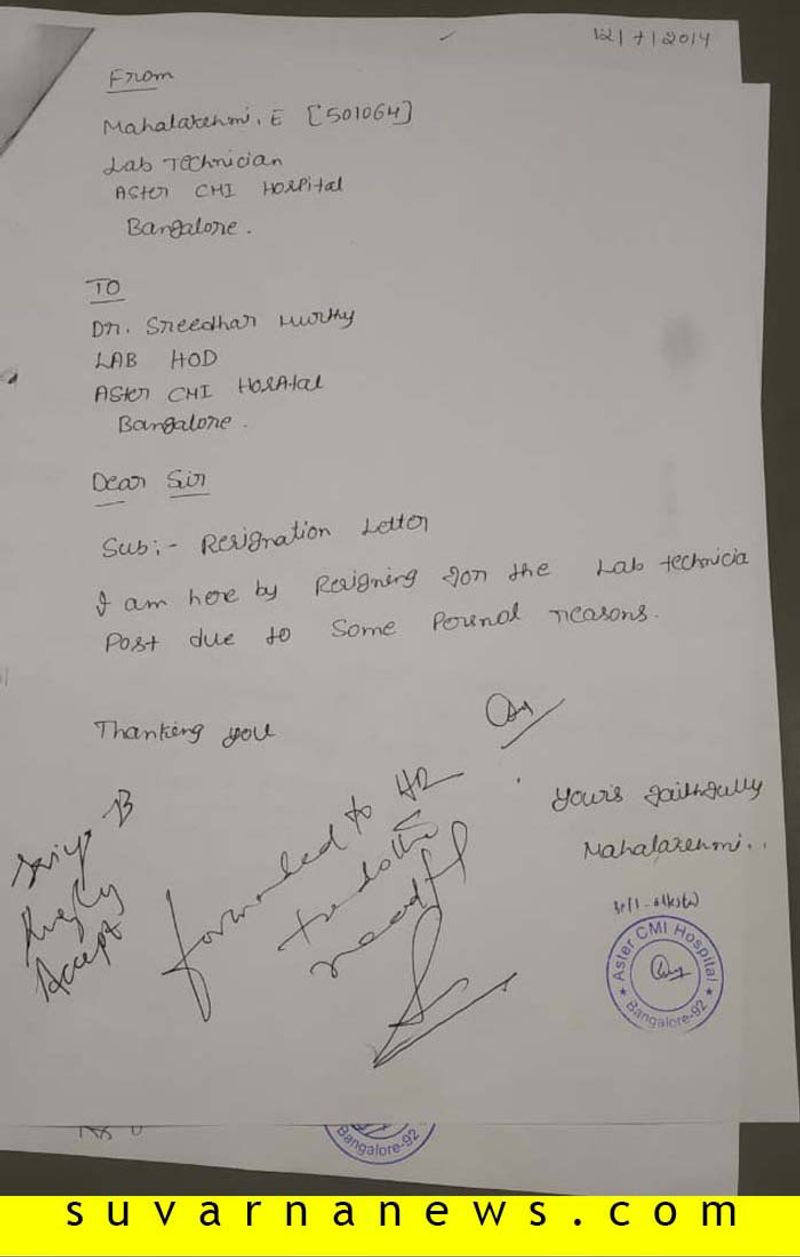 12/7/2014
From
Mahalakshmi. E [501064]
Lab Technician
Aster CMI Hospital
Bangalore.
TO
Dr. Sreedhar Murthy
LAB HOD
Aster CMI Hospital
Bangalore.
Dear Sir
Sub:- Resignation Letter
I am here by Resigning for the Lab technicia
Post due to Some Persnol reasons.
Thanking you
Yours faithfully
Mahalakshmi..
forwarded to HR
to do the
needful
B
Accept
Aster CMI Hospital
Bangalore-92
Bangalore-92
suvarnanews.com